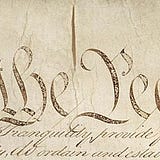 the Peo
Tranquility, provide
y, do ordain and esta